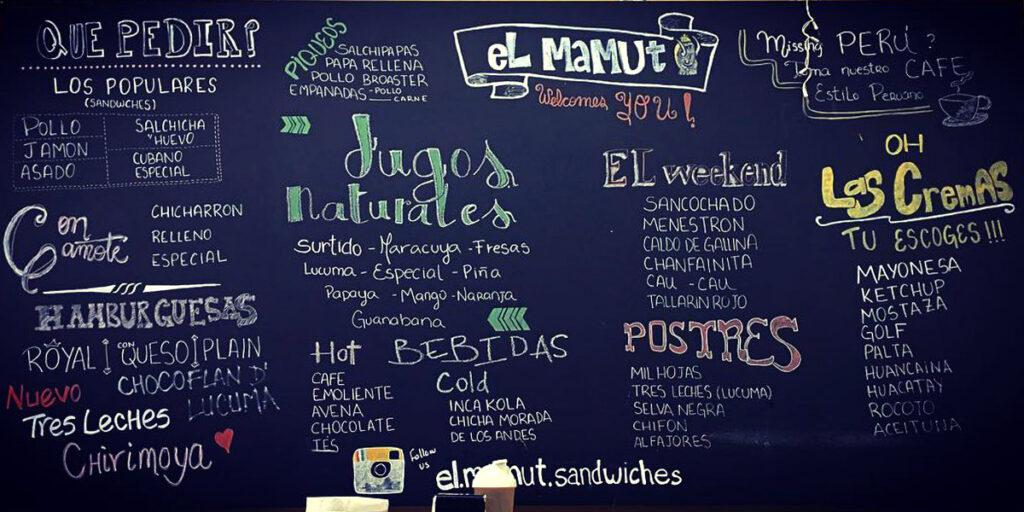 QUE PEDIR?
LOS POPULARES
(SANDWCHES)
POLLO
JAMON
ASADO
SALCHICHA
Y HUEVO
CUBANO
ESPECIAL
Con
Camote
CHICHARRON
RELLENO
ESPECIAL
HAMBURGUESAS
ROYAL ¡ CON QUESO ¡ PLAIN
Nuevo
CHOCOFLAN D'
LUCUMA
Tres Leches
CHIRIMOYA
PIQUEOS
SALCHIPAPAS
PAPA RELLENA
POLLO BROASTER
EMPANADAS - POLLO
CARNE
Jugos
Naturales
Surtido - Maracuya - Fresas
Lucuma - Especial - Piña
Papaya - Mango - Naranja
Guanabana
Hot BEBIDAS
CAFE
EMOLIENTE
AVENA
CHOCOLATE
TÉS
Cold
INCA KOLA
CHICHA MORADA
DE LOS ANDES
EL MAMUT
Welcomes YOU!
EL weekend
SANCOCHADO
MENESTRON
CALDO DE GALLINA
CHANFAINITA
CAU - CAU
TALLARIN ROJO
POSTRES
MILHOJAS
TRES LECHES (LUCUMA)
SELVA NEGRA
CHIFON
ALFAJORES
Missing PERÚ?
Toma nuestro CAFE
Estilo Peruano
OH
Las CremAS
TU ESCOGES!!!
MAYONESA
KETCHUP
MOSTAZA
GOLF
PALTA
HUANCAINA
HUACATAY
ROCOTO
ACEITUNA
Follow
us